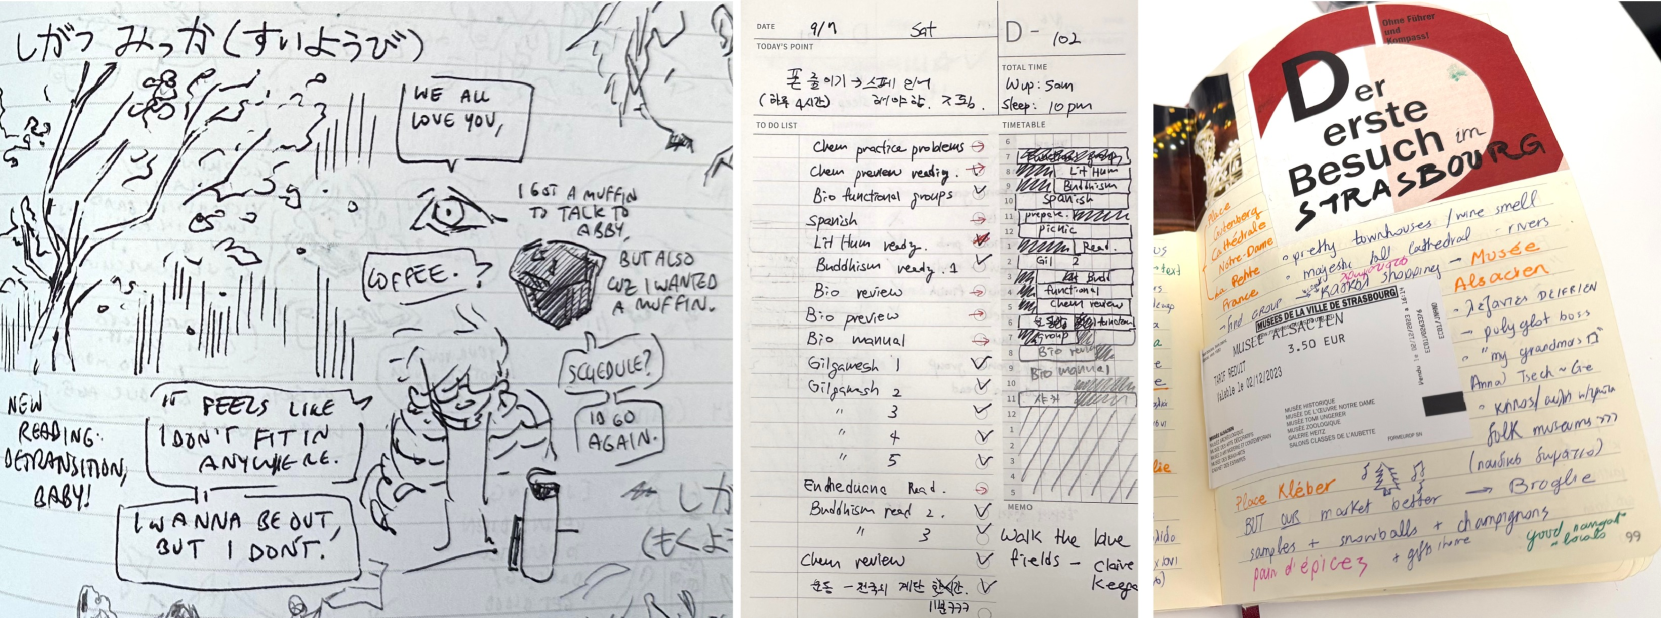 しがつ みっか(すいようび)
WE ALL
LOVE YOU,
I GOT A MUFFIN
TO TALK TO
ABBY,
BUT ALSO
CUZ I WANTED
A MUFFIN.
COFFEE. ?
SCHEDULE?
I'D GO
AGAIN.
NEW
READING:
DETRANSITION,
BABY!
IT FEELS LIKE
I DON'T FIT IN
ANYWHERE.
I WANNA BE OUT,
BUT I DON'T.
しが
(もくよ
DATE 9/7 Sat
D- 102
TODAY'S POINT
폰 줄이기 →
(하루 4시간) 해야 함.
TOTAL TIME
Wup: 5am
Sleep: 10pm
TO DO LIST
Chem practice problems
Chem preview readig.
Bio functional groups
Spanish
Lit Hum ready.
Buddhism ready. 1
Bio review
Bio preview
Bio manual
Gilgamesh 1
Gilgamesh 2
" 3
" 4
" 5
Enheduana Read.
Buddhism read 2.
" 3
Chem review
운동 -
TIMETABLE
6
7
8 Lit Hum
9 Buddhism
10 Spanish
11 prepare.
12 picnic
1 Read.
2 Gil 2
3
4 functional
5 Chem review
6
7 Group
8 Bio review
9 Bio manual
10
11 샤워
12
1
2
3
4
5
MEMO
Walk the blue
fields - Claire
Keega
Ohne Führer
und
Kompass!
Der
erste
Besuch im
STRASBOURG
Place
Gutenberg
Cathédrale
Notre-Dame
La Petite
France
• pretty townhouses / wine smell
• majestic tall cathedral - rivers
shopping → Musée
Alsacien
→ find GROUP
MUSÉES DE LA VILLE DE STRASBOURG
MUSEE ALSACIEN
3.50 EUR
TARIF REDUIT
Valable le 02/12/2023
MUSÉE HISTORIQUE
MUSÉE DE L'ŒUVRE NOTRE DAME
MUSÉE TOMI UNGERER
MUSÉE ZOOLOGIQUE
GALERIE HEITZ
SALONS CLASSES DE L'AUBETTE
→ polyglot boss
• "my grandmas
folk museums >>>
(παιδικό δωμάτιο)
Place Kléber
BUT OUR market better → Broglie
samples + snowballs + champignons
pain d'épices + gift
good nougat
- locals
99